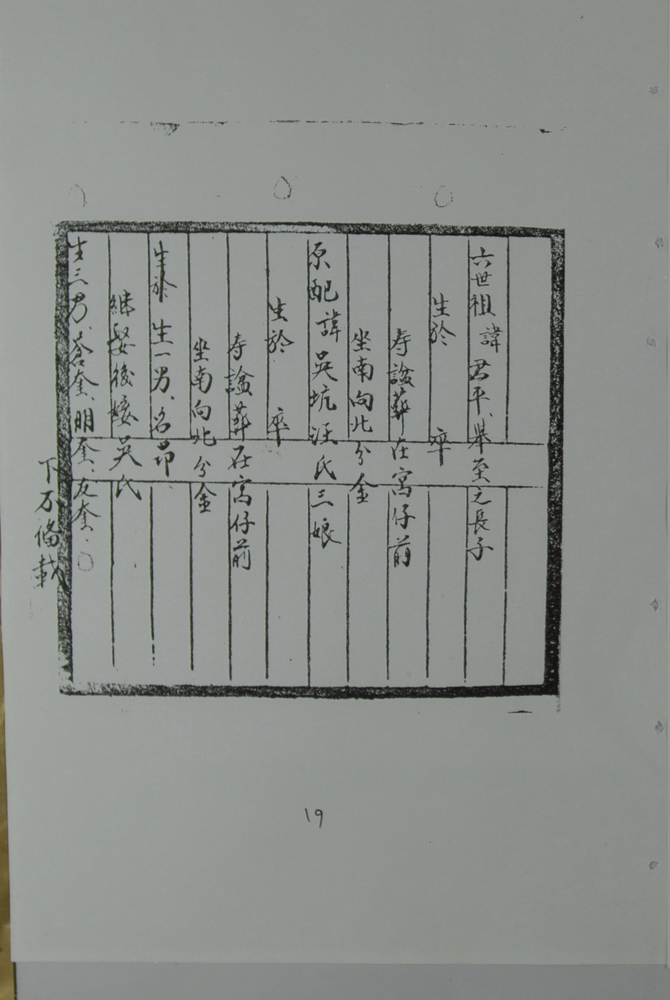 六世祖諱君平、舉至之長子
生於 卒
寿諡葬在窩仔前
坐南向北分金
原配諱吳坑汪氏三娘
生於 卒
寿諡葬在窩仔前
坐南向北分金
生於 生一男、名昂
継娶後婆吳氏
生三男、蒼奎、明奎、友奎、
下不俻載
19